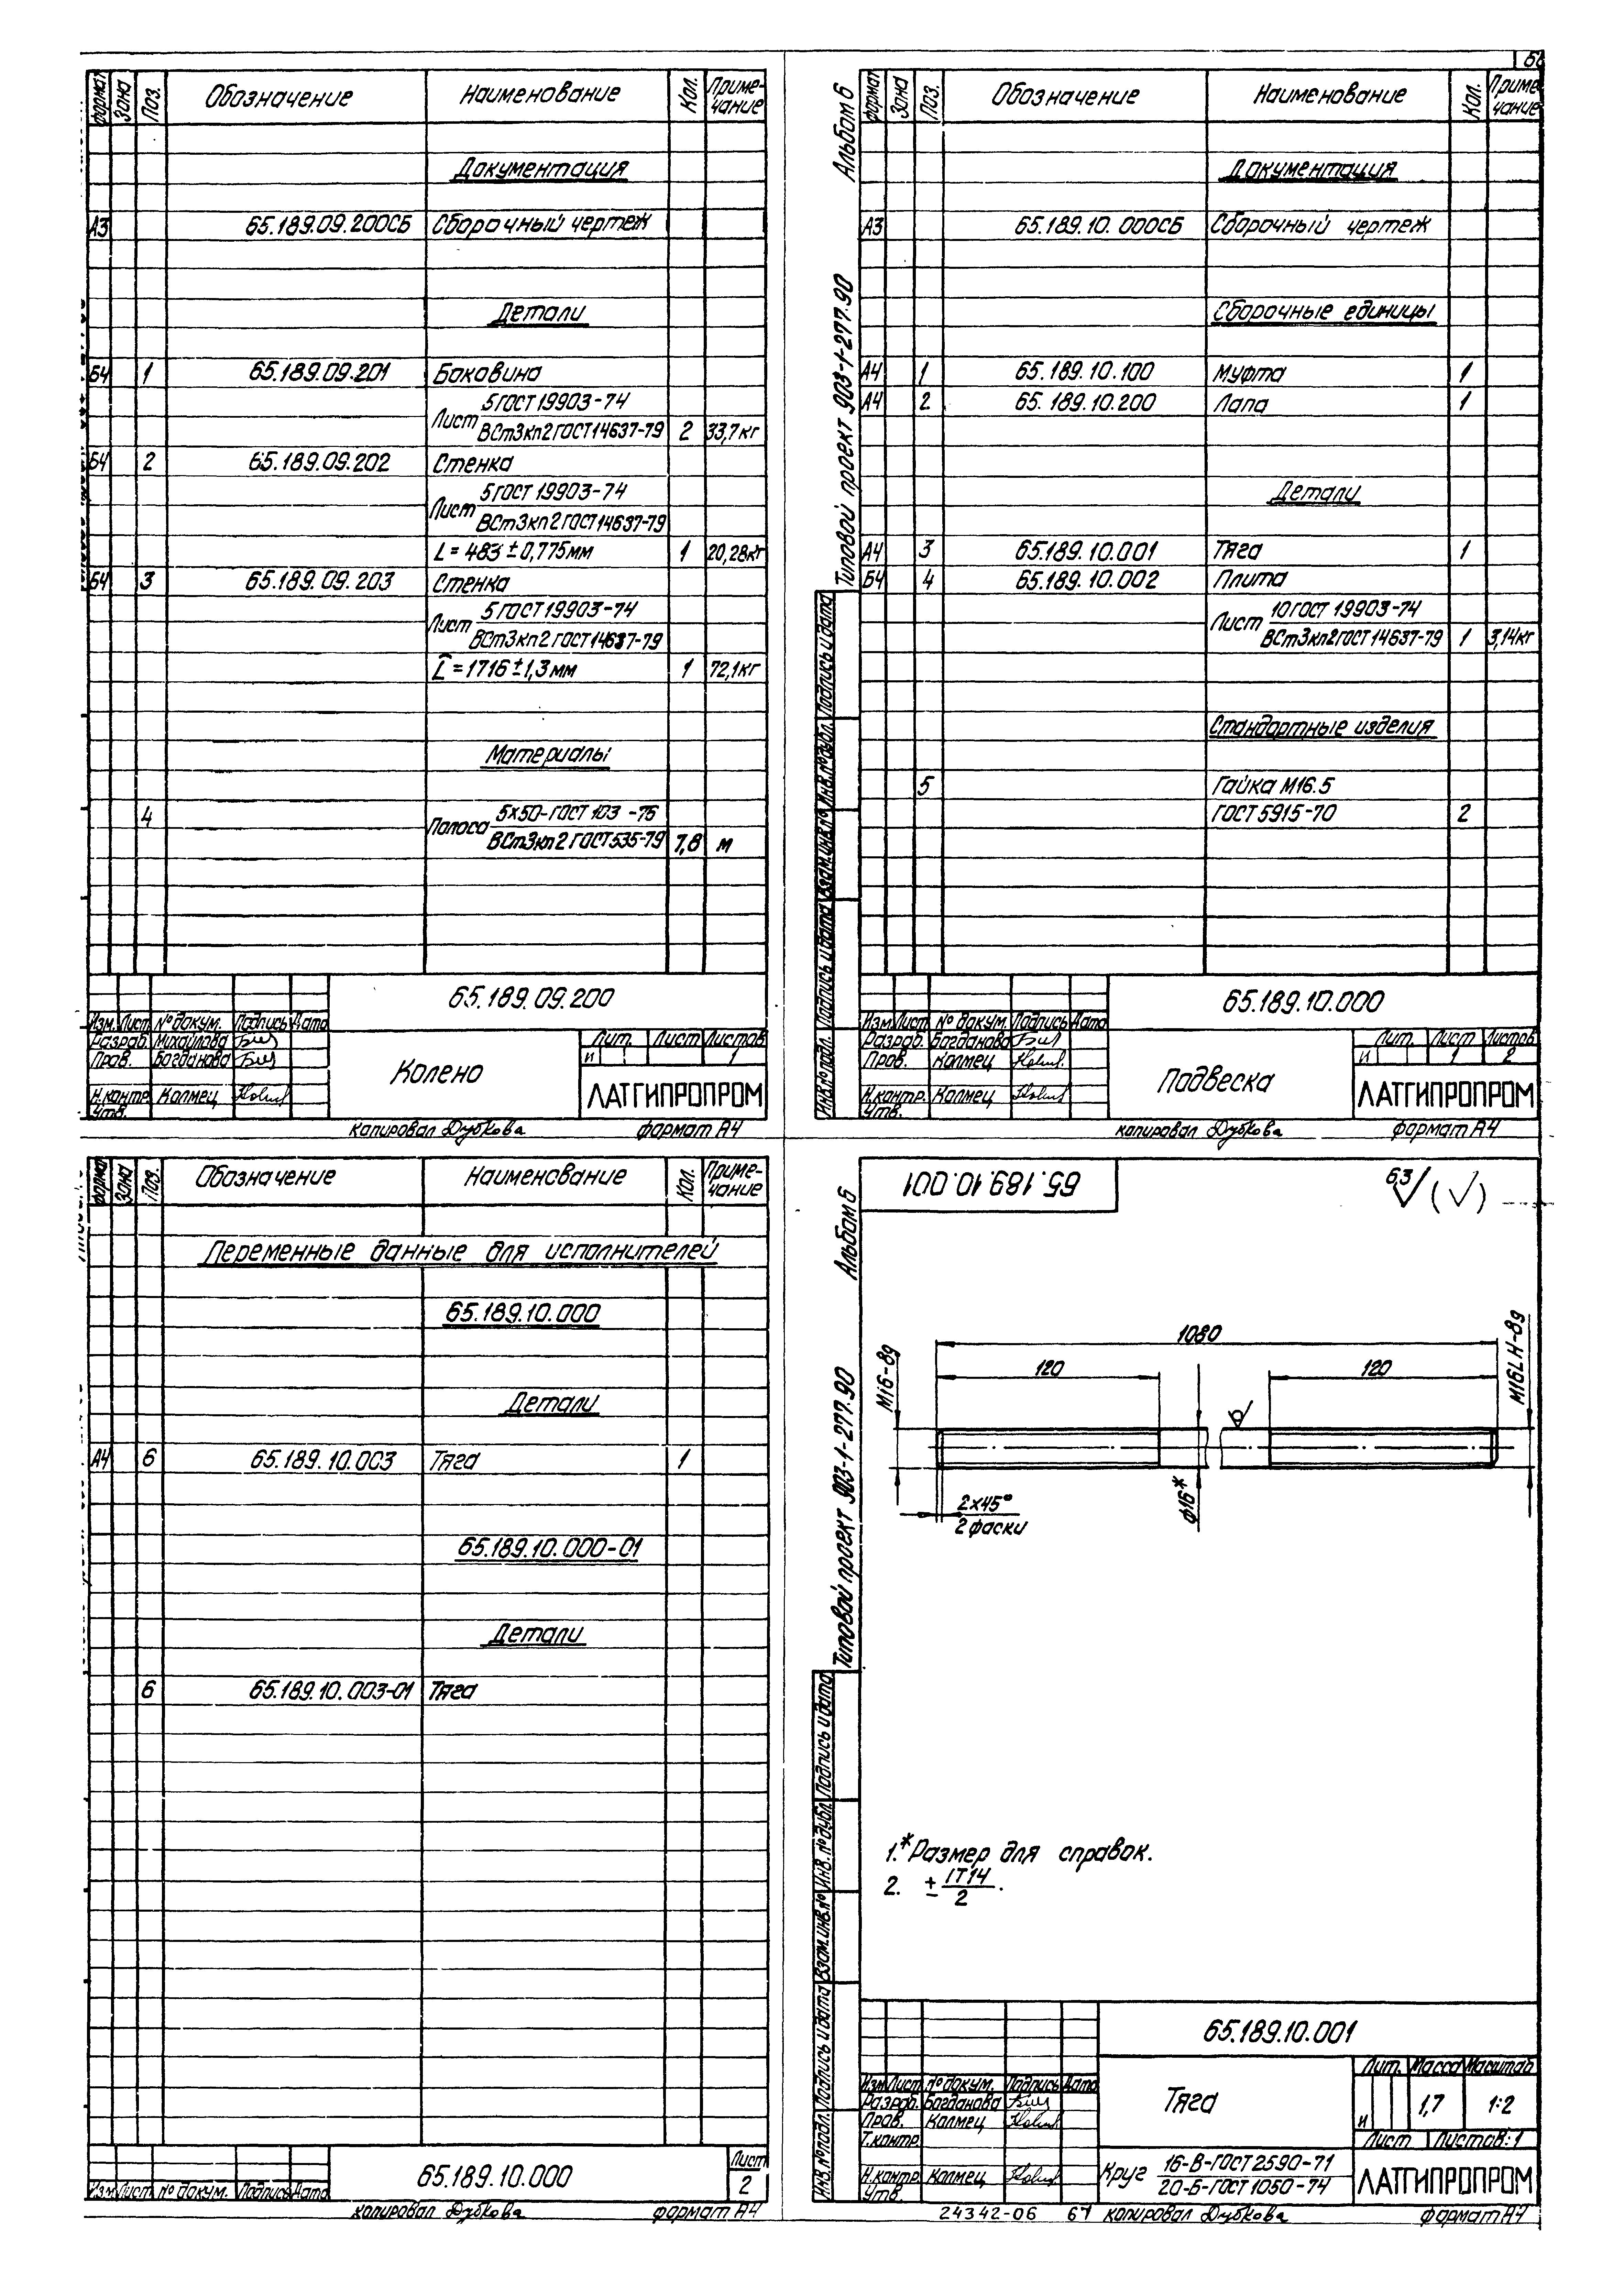 Формат Зона Поз. Обозначение Наименование Кол. Приме-чание
Документация
А3 65.189.09.200СБ Сборочный чертеж
Детали
Б4 1 65.189.09.201 Боковина
Лист 5 ГОСТ 19903-74
ВСт3кп2 ГОСТ 14637-79 2 33,7кг
Б4 2 65.189.09.202 Стенка
Лист 5 ГОСТ 19903-74
ВСт3кп2 ГОСТ 14637-79
L = 483 ± 0,775мм 1 20,28кг
Б4 3 65.189.09.203 Стенка
Лист 5 ГОСТ 19903-74
ВСт3кп2 ГОСТ 14637-79
L = 1716 ± 1,3мм 1 72,1кг
Материалы
4 Полоса 5х50-ГОСТ 103-76
ВСт3кп2 ГОСТ 535-79 7,8 м
65.189.09.200
Изм. Лист № докум. Подпись Дата
Разраб. Михайлова
Пров. Богданова
Н.контр. Калмец
Утв.
Колено
Лит. Лист Листов
И 1
ЛАТГИПРОПРОМ
копировал Дубкова формат А4
Альбом 6
Типовой проект 903-1-277.90
Инв.№ подл. Подпись и дата Взам.инв.№ Инв.№ дубл. Подпись и дата
Формат Зона Поз. Обозначение Наименование Кол. Приме-чание
Документация
А3 65.189.10.000СБ Сборочный чертеж
Сборочные единицы
А4 1 65.189.10.100 Муфта 1
А4 2 65.189.10.200 Лапа 1
Детали
А4 3 65.189.10.001 Тяга 1
Б4 4 65.189.10.002 Плита
Лист 10 ГОСТ 19903-74
ВСт3кп2 ГОСТ 14637-79 1 3,14кг
Стандартные изделия
5 Гайка М16.5
ГОСТ 5915-70 2
65.189.10.000
Изм. Лист № докум. Подпись Дата
Разраб. Богданова
Пров. Калмец
Н.контр. Калмец
Утв.
Подвеска
Лит. Лист Листов
И 1 2
ЛАТГИПРОПРОМ
копировал Дубкова формат А4
Формат Зона Поз. Обозначение Наименование Кол. Приме-чание
Переменные данные для исполнителей
65.189.10.000
Детали
А4 6 65.189.10.003 Тяга 1
65.189.10.000-01
Детали
6 65.189.10.003-01 Тяга
Изм. Лист № докум. Подпись Дата
65.189.10.000
Лист
2
копировал Дубкова формат А4
Альбом 6
Типовой проект 903-1-277.90
Инв.№ подл. Подпись и дата Взам.инв.№ Инв.№ дубл. Подпись и дата
65.189.10.001
6,3 √ (√)
1080
120 120
М16-8g
М16LH-8g
ф16*
2х45°
2 фаски
1.* Размер для справок.
2. ± IT14/2.
65.189.10.001
Изм. Лист № докум. Подпись Дата
Разраб. Богданова
Пров. Калмец
Т.контр.
Н.контр. Калмец
Утв.
Тяга
Лит. Масса Масштаб
И 1,7 1:2
Лист Листов 1
Круг 16-В-ГОСТ 2590-71
20-Б-ГОСТ 1050-74
ЛАТГИПРОПРОМ
24342-06 67 копировал Дубкова формат А4